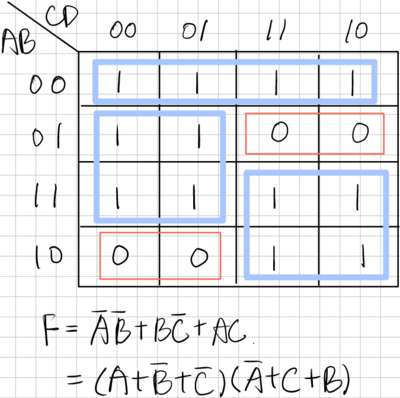 CD
AB 00 01 11 10
00 1 1 1 1
01 1 1 0 0
11 1 1 1 1
10 0 0 1 1
F = A̅B̅+BC̅+AC.
= (A+B̅+C̅)(A̅+C+B)